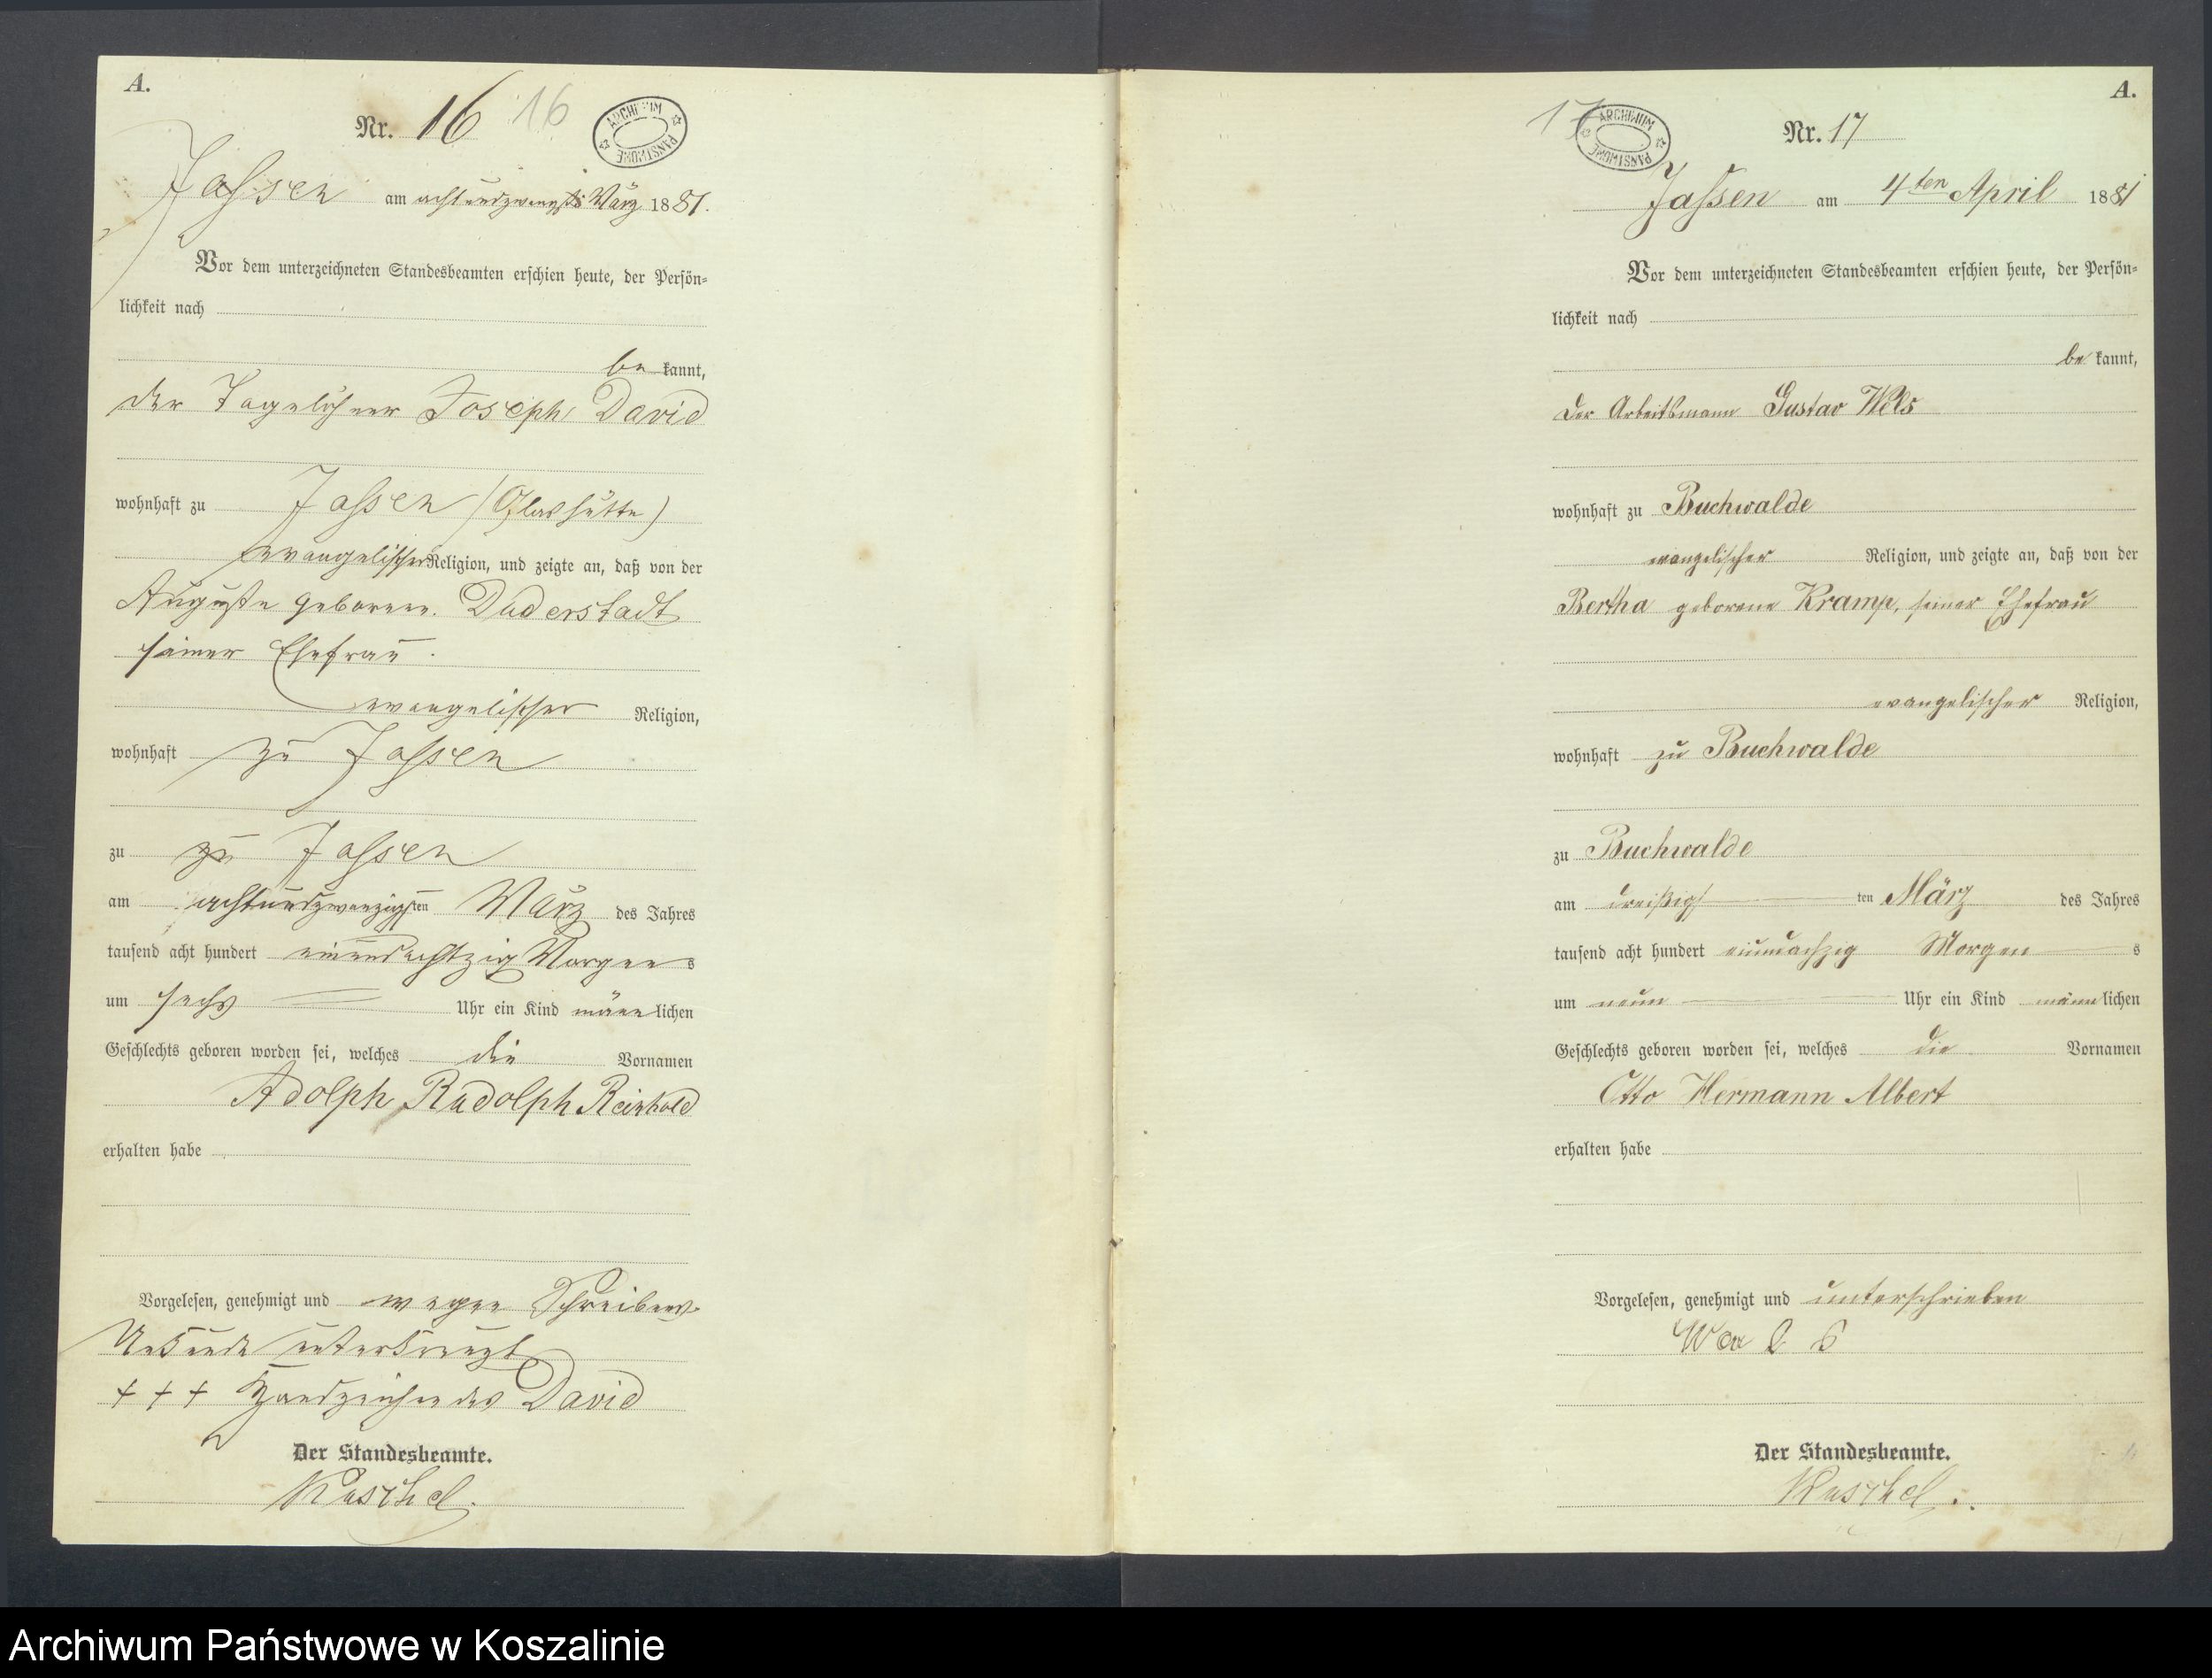 A.
Nr. 16 16
ARCHIWUM PAŃSTWOWE
Jassen am achtundzwanzigst. März 1881.
Vor dem unterzeichneten Standesbeamten erschien heute, der Persön-
lichkeit nach
be kannt,
der Tagelöhner Joseph David
wohnhaft zu Jassen (Glashütte)
evangelischer Religion, und zeigte an, daß von der
Auguste geborene. Duderstadt
seiner Ehefrau.
evangelischer Religion,
wohnhaft zu Jassen
zu zu Jassen
am achtundzwanzigsten März des Jahres
tausend acht hundert einundachtzig Morgens
um sechs Uhr ein Kind männlichen
Geschlechts geboren worden sei, welches die Vornamen
Adolph Rudolph Reinhold
erhalten habe
Vorgelesen, genehmigt und wegen Schreibens-
Unkunde unterkreuzt
+ + + Handzeichen des David
Der Standesbeamte.
Kuschel.
A.
17 Nr. 17
ARCHIWUM PAŃSTWOWE
Jassen am 4ten April 1881
Vor dem unterzeichneten Standesbeamten erschien heute, der Persön-
lichkeit nach
be kannt,
der Arbeitsmann Gustav Wels
wohnhaft zu Buchwalde
evangelischer Religion, und zeigte an, daß von der
Bertha geborene Kramp, seiner Ehefrau
evangelischer Religion,
wohnhaft zu Buchwalde
zu Buchwalde
am dreißigsten März des Jahres
tausend acht hundert einundachzig Morgens
um neun Uhr ein Kind männlichen
Geschlechts geboren worden sei, welches die Vornamen
Otto Hermann Albert
erhalten habe
Vorgelesen, genehmigt und unterschrieben
Der Standesbeamte.
Kuschel.
Archiwum Państwowe w Koszalinie